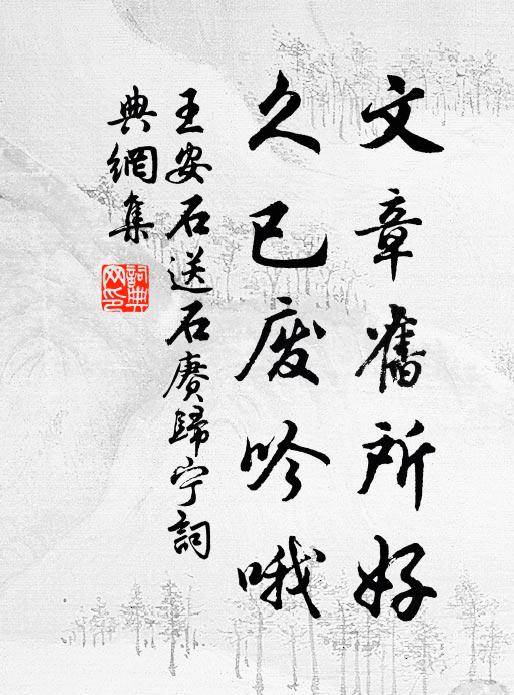 文章舊所好
久已废吟哦
王安石送石赓歸宁詞
典網集
詞典
网印